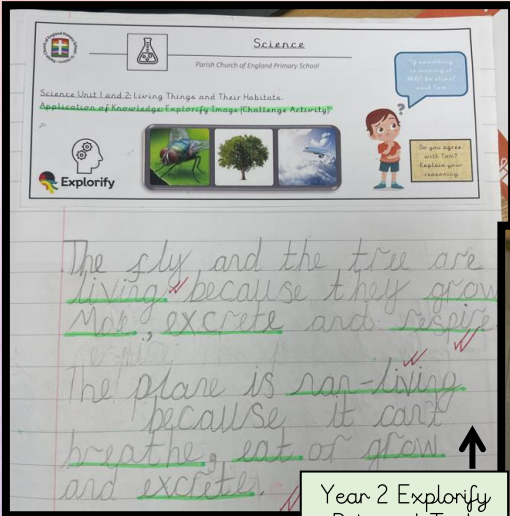 Science
Parish Church of England Primary School
Science Unit 1 and 2: Living Things and Their Habitats.
Application of Knowledge: Explorify Image (Challenge Activity)
"If something
is moving it
must be alive!"
said Tom.
?
Do you agree
with Tom?
Explain your
reasoning.
Explorify
The fly and the tree are
living because they grow
, excrete and respire
The plane is non-living
because it can't
breathe, eat or grow
and excrete.
Year 2 Explorify